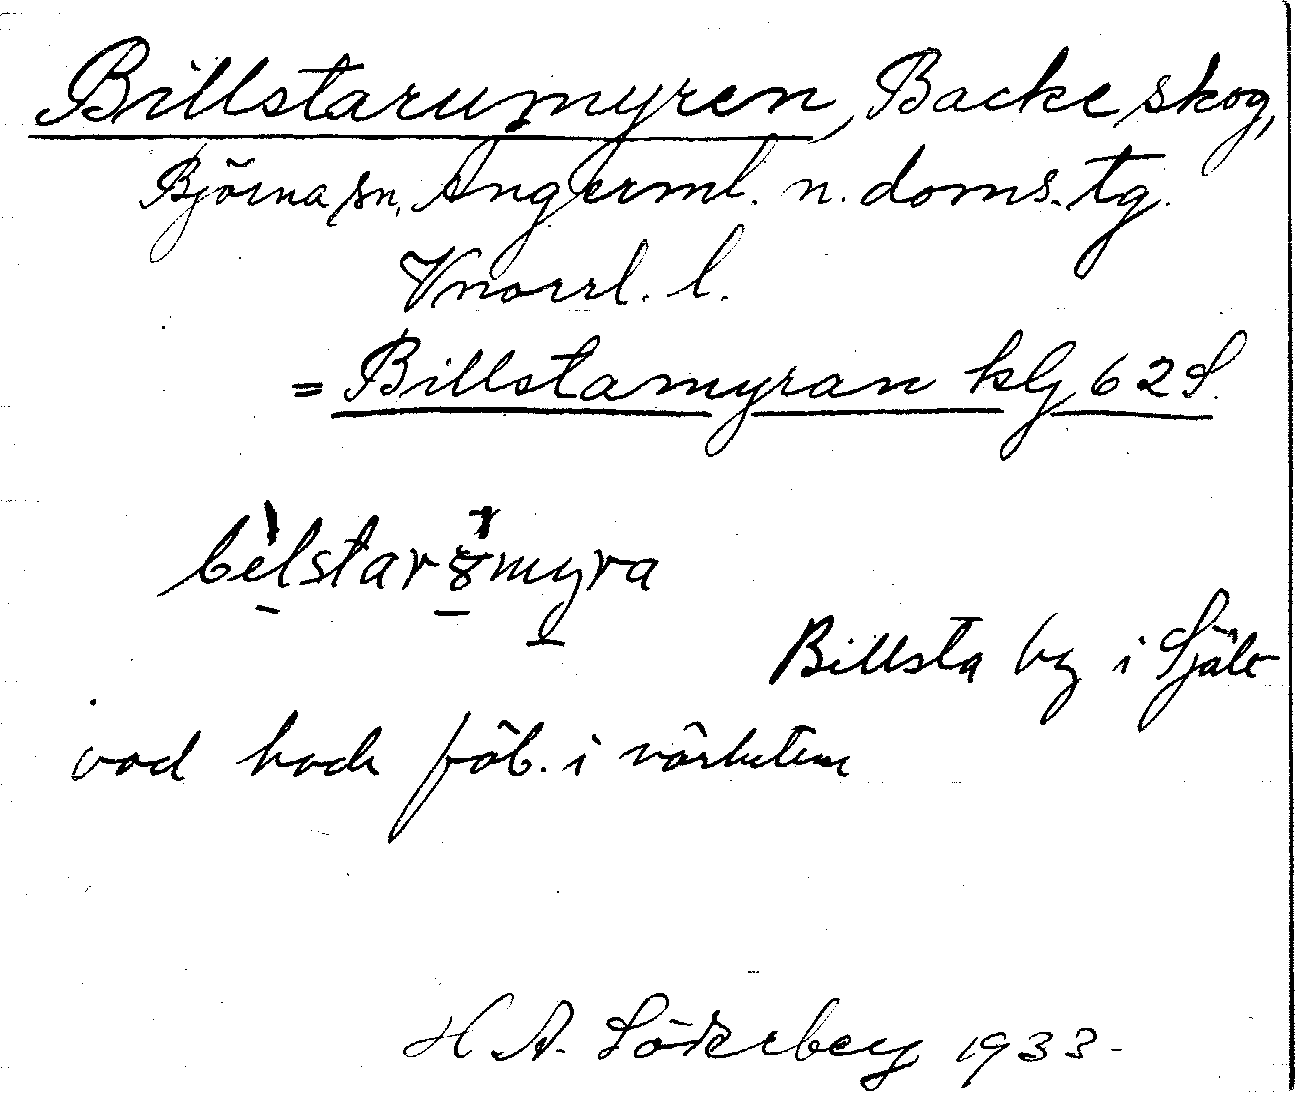 Billstarumyren, Backe skog,
Björna sn, Ångerml. n. doms. tg.
Vnorrl. l.
= Billstamyran klg 62 S.
bèlstarømyra
Billsta by i Själv
vad hade fäb. i
H A. Söderberg 1933.